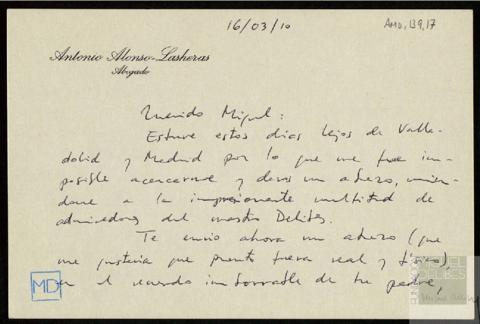 16/03/10
AMD, 139, 17
Antonio Alonso-Lasheras
Abogado
Querido Miguel:
Estuve estos días lejos de Valla-
dolid y Madrid por lo que me fue im-
posible acercarme y daros un abrazo, unién-
dome a la impresionante multitud de
admiradores del maestro Delibes.
Te envío ahora un abrazo (que
me gustaría que pronto fuera real y físico),
en el recuerdo imborrable de tu padre,
MD
FUNDACIÓN
MIGUEL
DELIBES